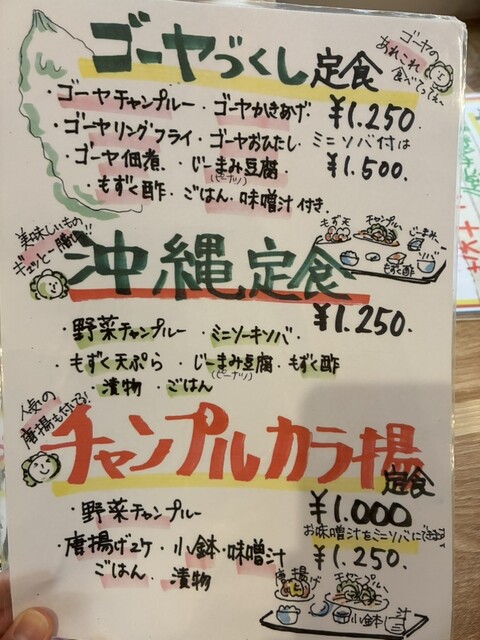 ゴーヤづくし定食
ゴーヤの
あれこれ
食べてってネ
・ゴーヤチャンプルー・ゴーヤかきあげ ¥1.250.
・ゴーヤリングフライ・ゴーヤおひたし ミニソバ付は
・ゴーヤ佃煮・じーまみ豆腐・ ¥1.500.
(ピーナツ)
・もずく酢・ごはん・味噌汁付き.
美味しいもの
ギュッと
沖縄定食
もずく天 チャンプル じーまみ
もずく酢
¥1.250.
・野菜チャンプルー・ミニソーキソバ・
・もずく天ぷら・じーまみ豆腐・もずく酢
(ピーナツ)
・漬物・ごはん
人気の
唐揚も付いてる!
チャンプルカラ揚
定食
・野菜チャンプルー ¥1.000
お味噌汁をミニソバに
・唐揚げ2ケ・小鉢・味噌汁 ¥1.250.
ごはん・漬物
唐揚げ チャンプル
小鉢 汁